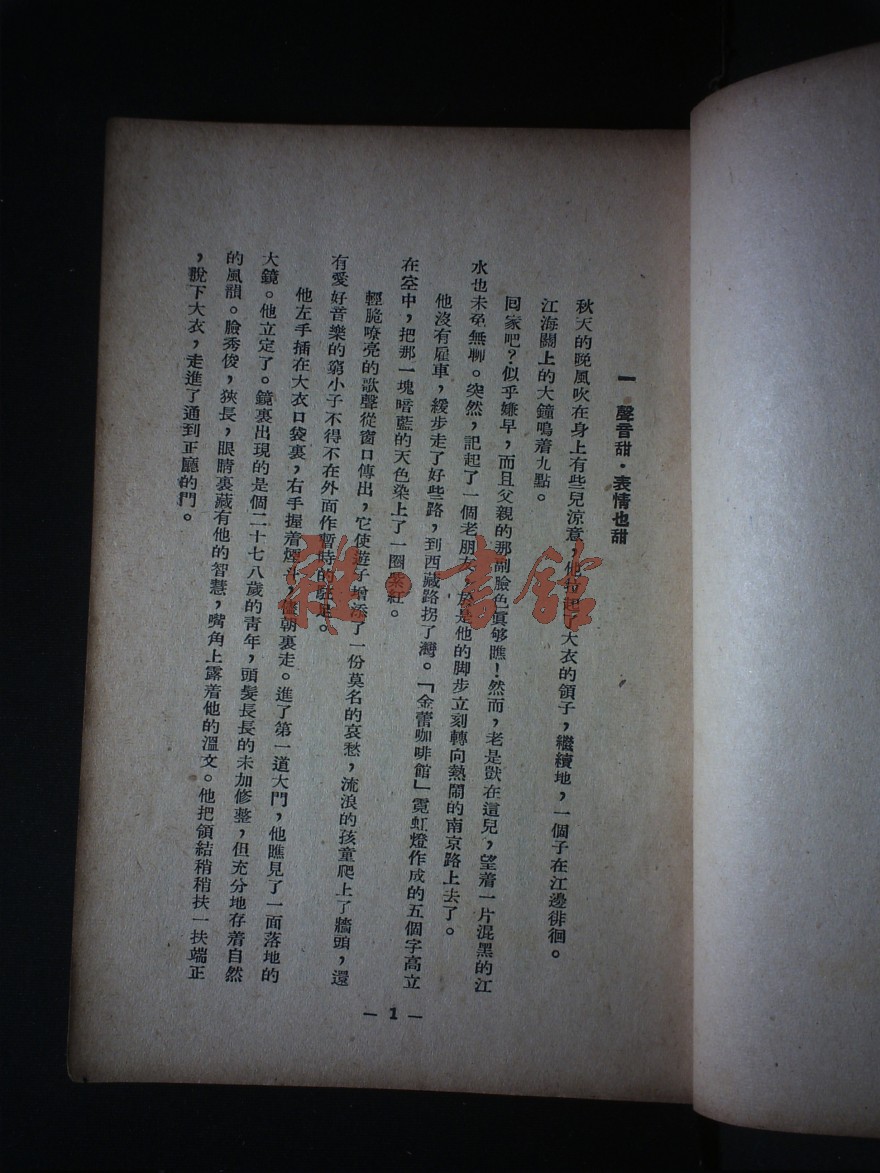 一　聲音甜・表情也甜
秋天的晚風吹在身上有些兒涼意，他拉起了大衣的領子，繼續地，一個子在江邊徘徊。
江海關上的大鐘鳴着九點。
回家吧？似乎嫌早，而且父親的那副臉色眞够瞧！然而，老是獃在這兒，望着一片混黑的江
水也未免無聊。突然，記起了一個老朋友，於是他的脚步立刻轉向熱鬧的南京路上去了。
他沒有雇車，緩步走了好些路，到西藏路拐了灣。「金蕾咖啡館」霓虹燈作成的五個字高立
在空中，把那一塊暗藍的天色染上了一圈紫紅。
輕脆嘹亮的歌聲從窗口傳出，它使遊子增添了一份莫名的哀愁，流浪的孩童爬上了牆頭，還
有愛好音樂的窮小子不得不在外面作暫時的駐足。
他左手插在大衣口袋裏，右手握着煙斗，儘朝裏走。進了第一道大門，他瞧見了一面落地的
大鏡。他立定了。鏡裏出現的是個二十七八歲的青年，頭髮長長的未加修整，但充分地存着自然
的風韻。臉秀俊，狹長，眼睛裏藏有他的智慧，嘴角上露着他的溫文。他把領結稍稍扶一扶端正
，脫下大衣，走進了通到正廳的門。
— 1 —
雜·書館